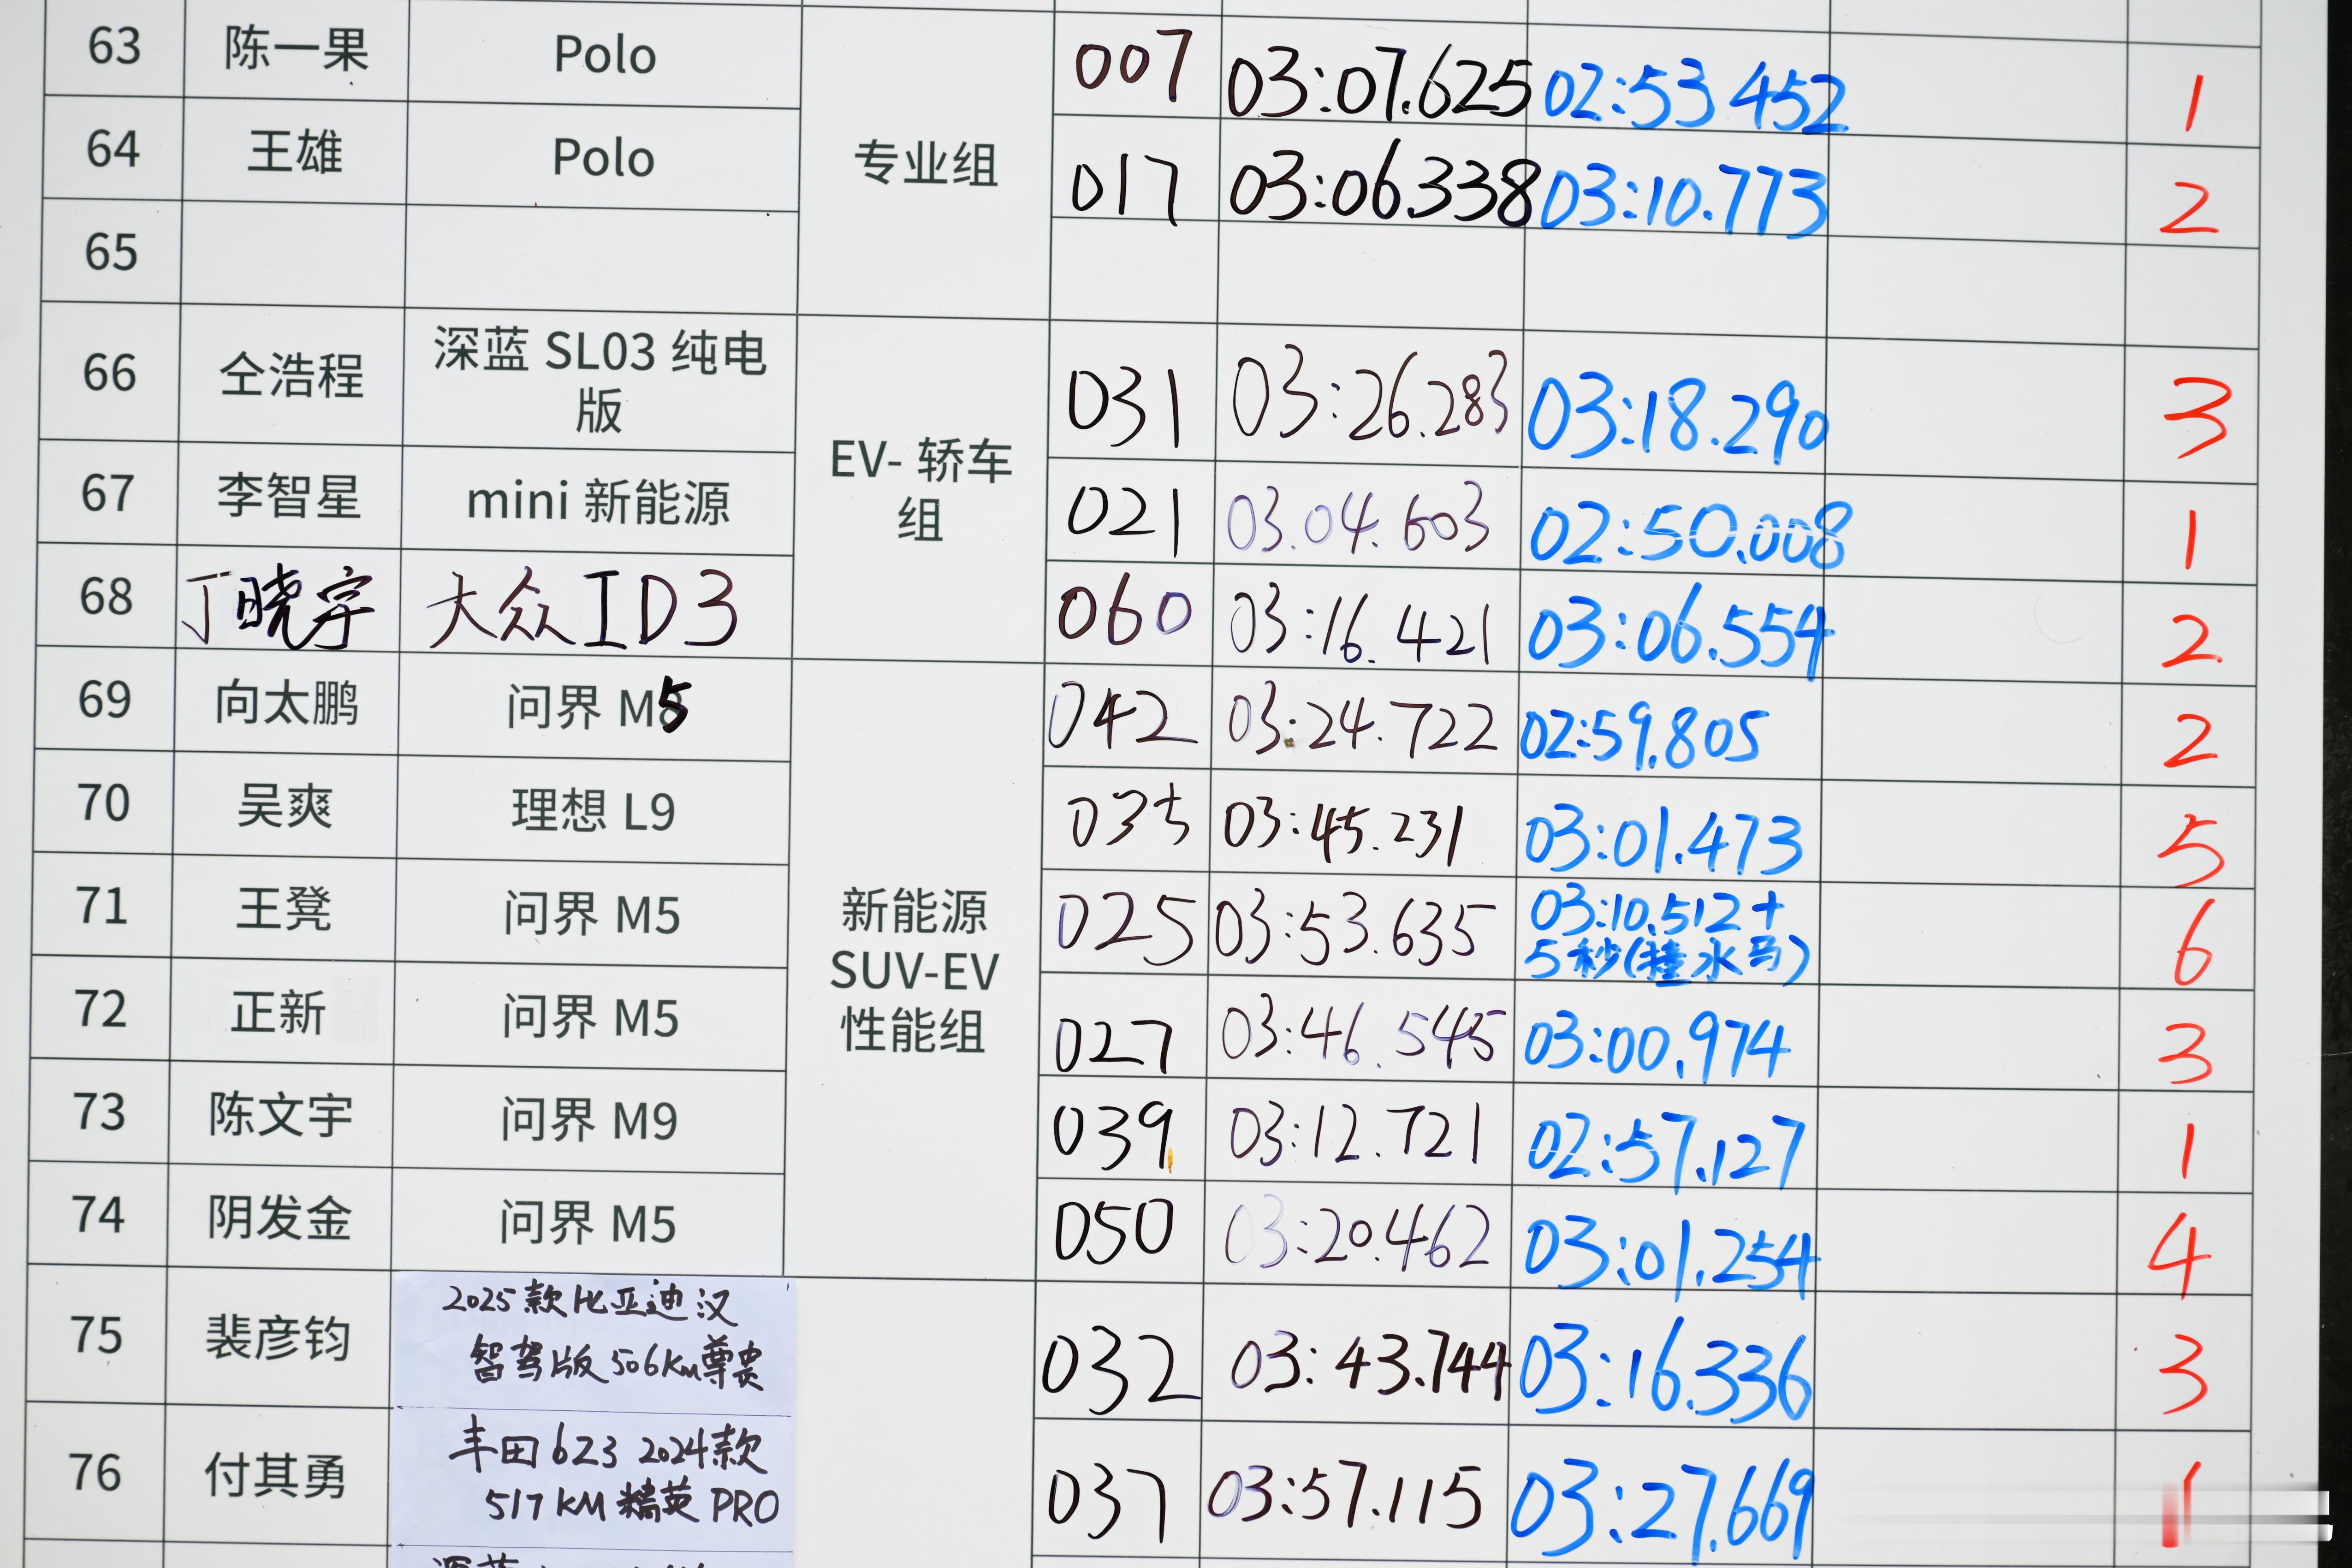 63 陈一果 Polo 007 03:07.625 02:53 452 1
64 王雄 Polo 专业组 017 03:06.338 03:10.773 2
65
66 仝浩程 深蓝 SL03 纯电版 031 03:26.283 03:18.290 3
EV- 轿车组
67 李智星 mini 新能源 021 03.04.603 02:50.008 1
68 丁晓宇 大众ID3 060 03:16.421 03:06.554 2
69 向太鹏 问界 M5 042 03:24.722 02:59.805 2
70 吴爽 理想 L9 035 03:45.231 03:01.473 5
71 王凳 问界 M5 025 03:53.635 03:10.512+
5秒(撞水马) 6
新能源
SUV-EV
性能组
72 正新 问界 M5 027 03:46.545 03:00.974 3
73 陈文宇 问界 M9 039 03:12.721 02:57.127 1
74 阴发金 问界 M5 050 03:20.462 03:01.254 4
75 裴彦钧 2025款比亚迪汉
智驾版506Km尊贵 032 03:43.744 03:16.336 3
76 付其勇 丰田bZ3 2024款
517KM精英PRO 037 03:57.115 03:27.669